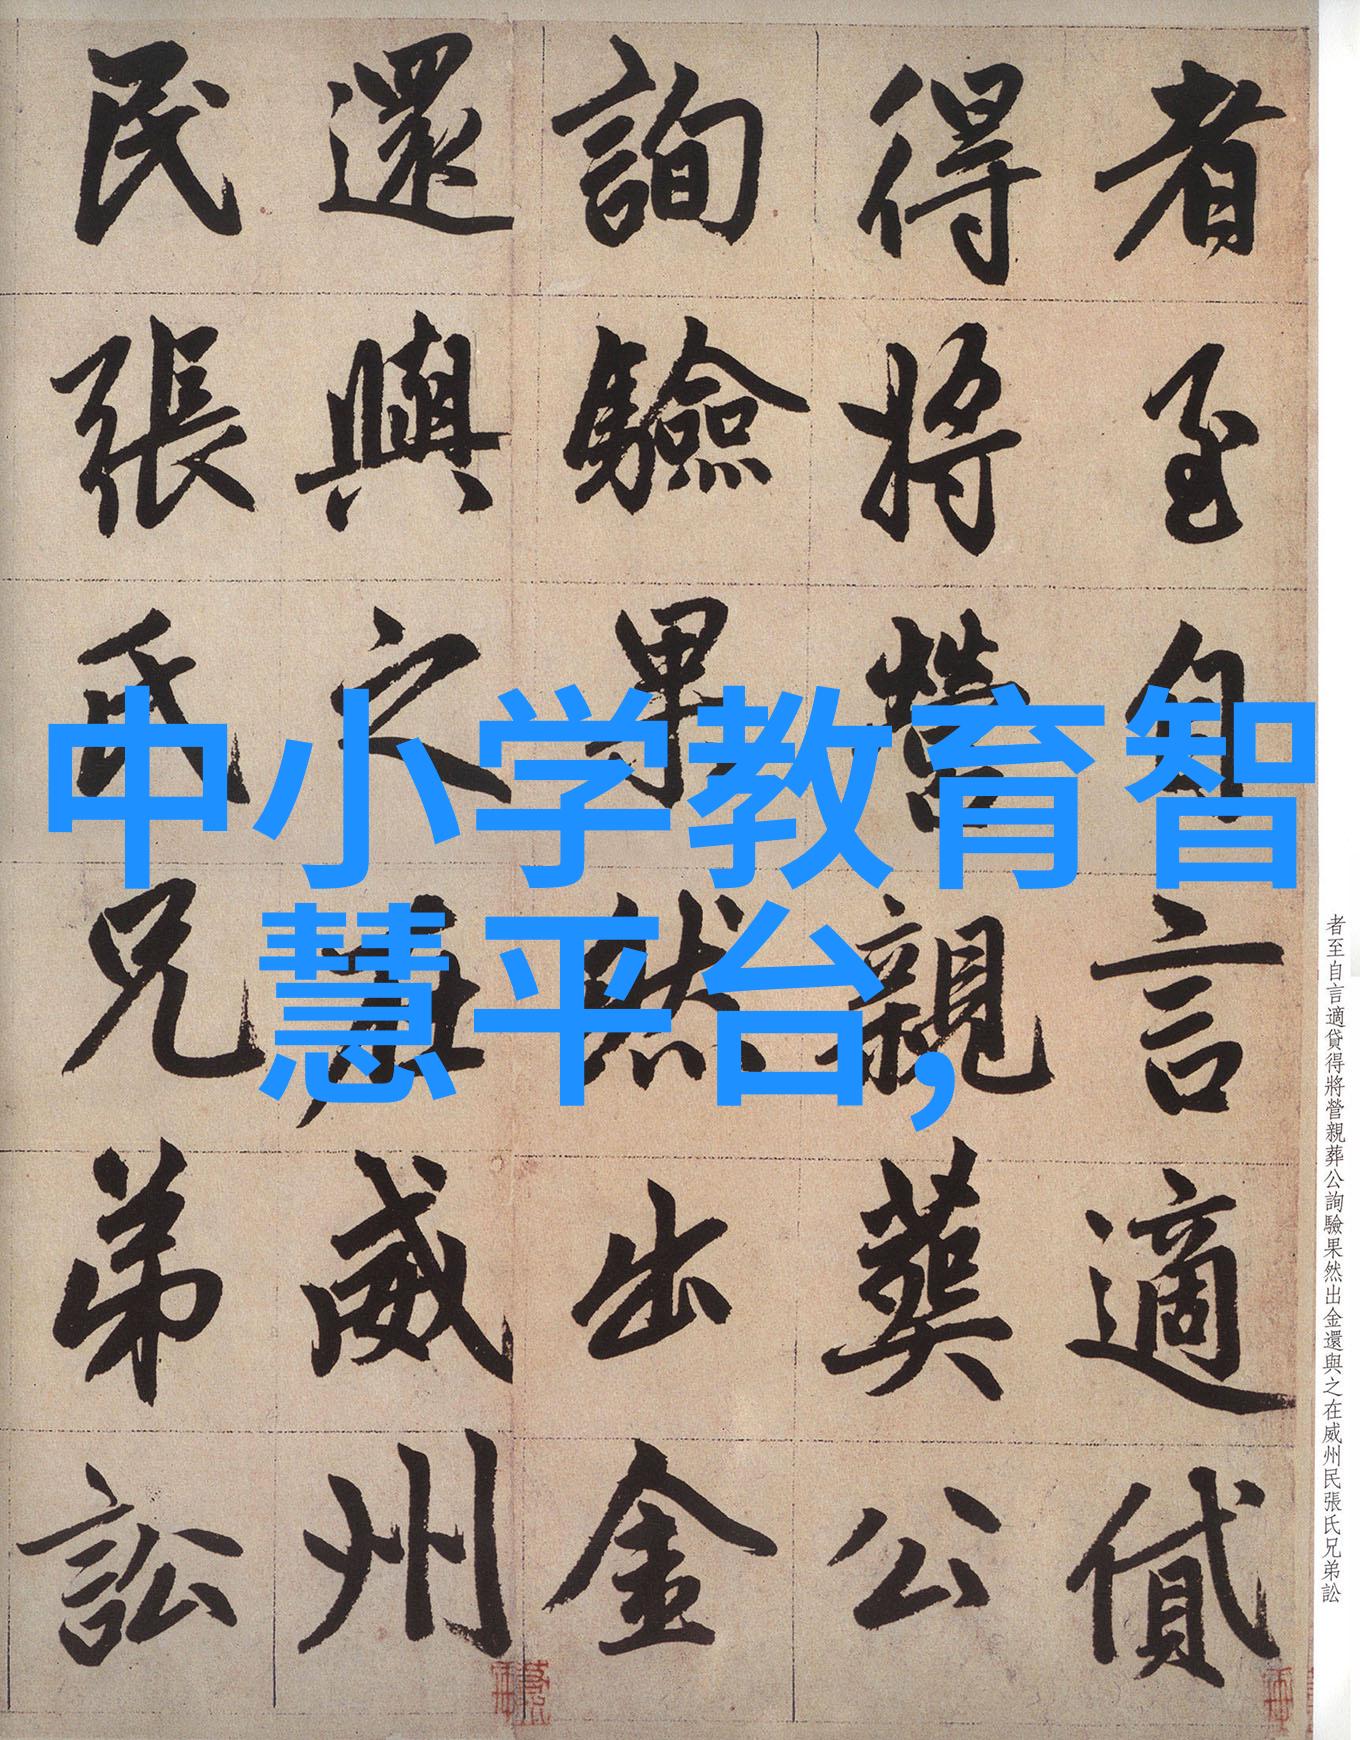 中小学教育智
慧平台,
者至自言適貸
得將營親葬公
詢驗果然出金
還與之在威州
民張氏兄弟訟
者至自言適貸得將營親葬公詢驗果然出金還與之在威州民張氏兄弟訟